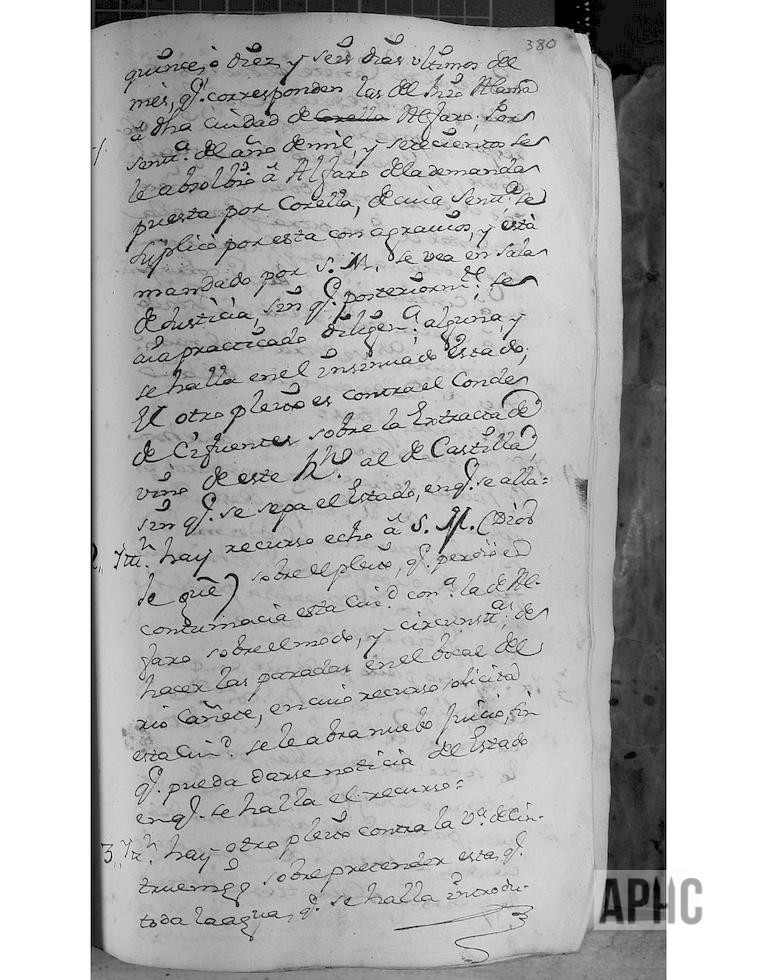 380
quince, o diez y seis dias ultimos del
mes, q.e corresponden las del Rio Alama
â dha ciudad de Corella Alfaro; por
sent.a del año de mil, y setecientos se
le absolbio â Alfaro dela demanda
puesta por Corella, de cuia sent.a se
suplicó por esta con agravios, y está
mandado por S. M. se vea en sala
de Justicia, sin q.e posteriorm.te se
aia practicado diligen.a alguna, y
se halla en el insinuado estado;
El otro pleito es contra el Conde
de Cifuentes sobre la Extracta de
vino de este R.no al de Castilla
sin q.e se sepa el Estado, en q.e se alla=
2,, Ytt.n hay recurso echo â S. M. (Dios
le gûe) sobre el pleito, q.e perdio en
contumacia esta Ciu.d con.a la de Al-
faro sobre el modo, y circunst.as de
hacer las paradas en el bocal del
rio Cañete, en cuio recurso solicita
esta Ciu.d se le abra nuebo Juicio, sin
q.e pueda darse noticia del Estado
en q.e se halla el recurso=
3,, Ytt.n hay otro pleito contra la V.a de Cin-
truenigo sobre pretender esta, q.e
toda la agua, q.e se halla introdu-
APHC